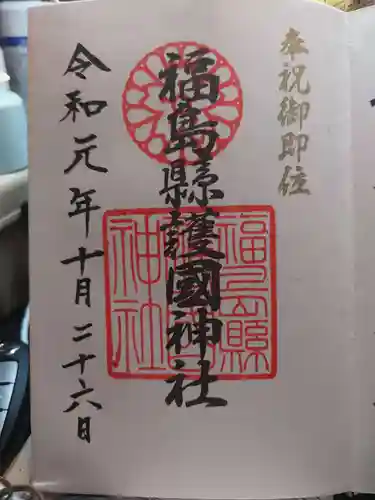 奉祝御即位
福島縣護國神社
令和元年十月二十六日
福島縣
護國
神社